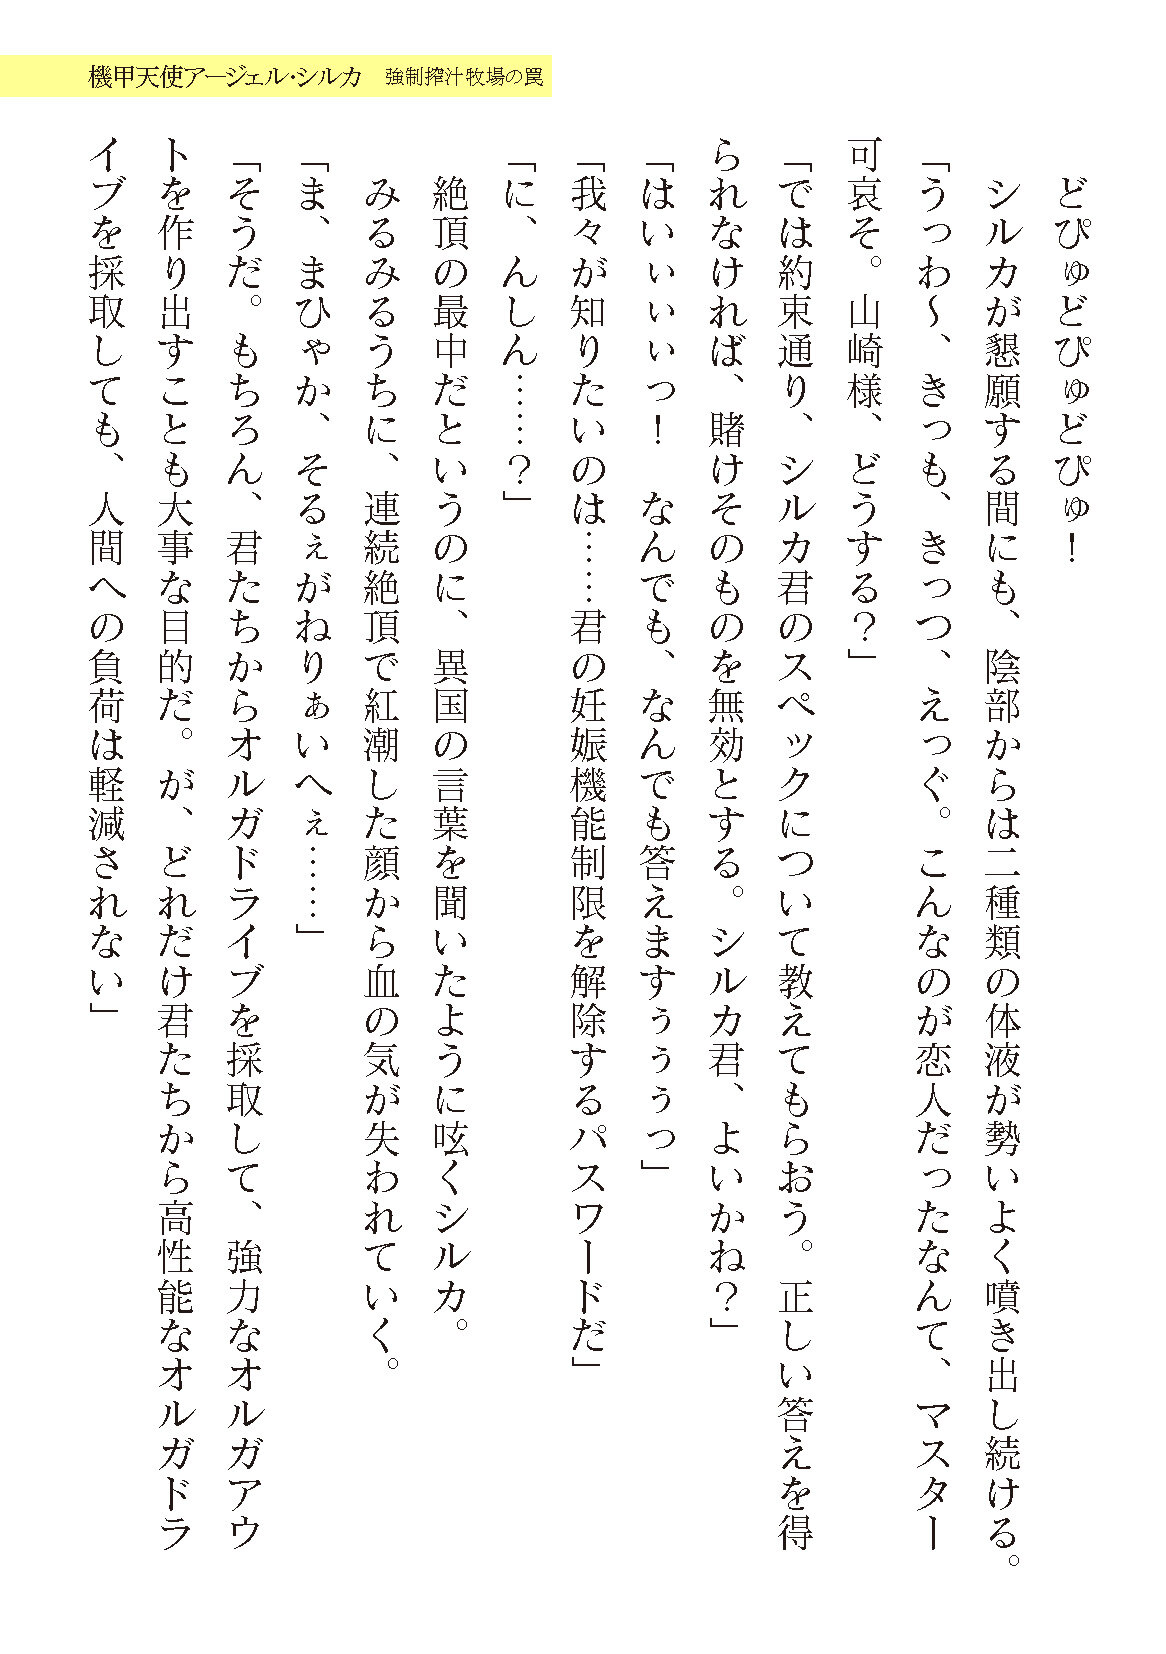 機甲天使アージェル・シルカ　強制搾汁牧場の罠
　どぴゅどぴゅどぴゅ！
　シルカが懇願する間にも、陰部からは二種類の体液が勢いよく噴き出し続ける。
「うっわ～、きっも、きっつ、えっぐ。こんなのが恋人だったなんて、マスター
可哀そ。山崎様、どうする？」
「では約束通り、シルカ君のスペックについて教えてもらおう。正しい答えを得
られなければ、賭けそのものを無効とする。シルカ君、よいかね？」
「はいぃぃぃっ！　なんでも、なんでも答えますぅぅぅっ」
「我々が知りたいのは……君の妊娠機能制限を解除するパスワードだ」
「に、んしん……？」
　絶頂の最中だというのに、異国の言葉を聞いたように呟くシルカ。
　みるみるうちに、連続絶頂で紅潮した顔から血の気が失われていく。
「ま、まひゃか、そるぇがねりぁいへぇ……」
「そうだ。もちろん、君たちからオルガドライブを採取して、強力なオルガアウ
トを作り出すことも大事な目的だ。が、どれだけ君たちから高性能なオルガドラ
イブを採取しても、人間への負荷は軽減されない」